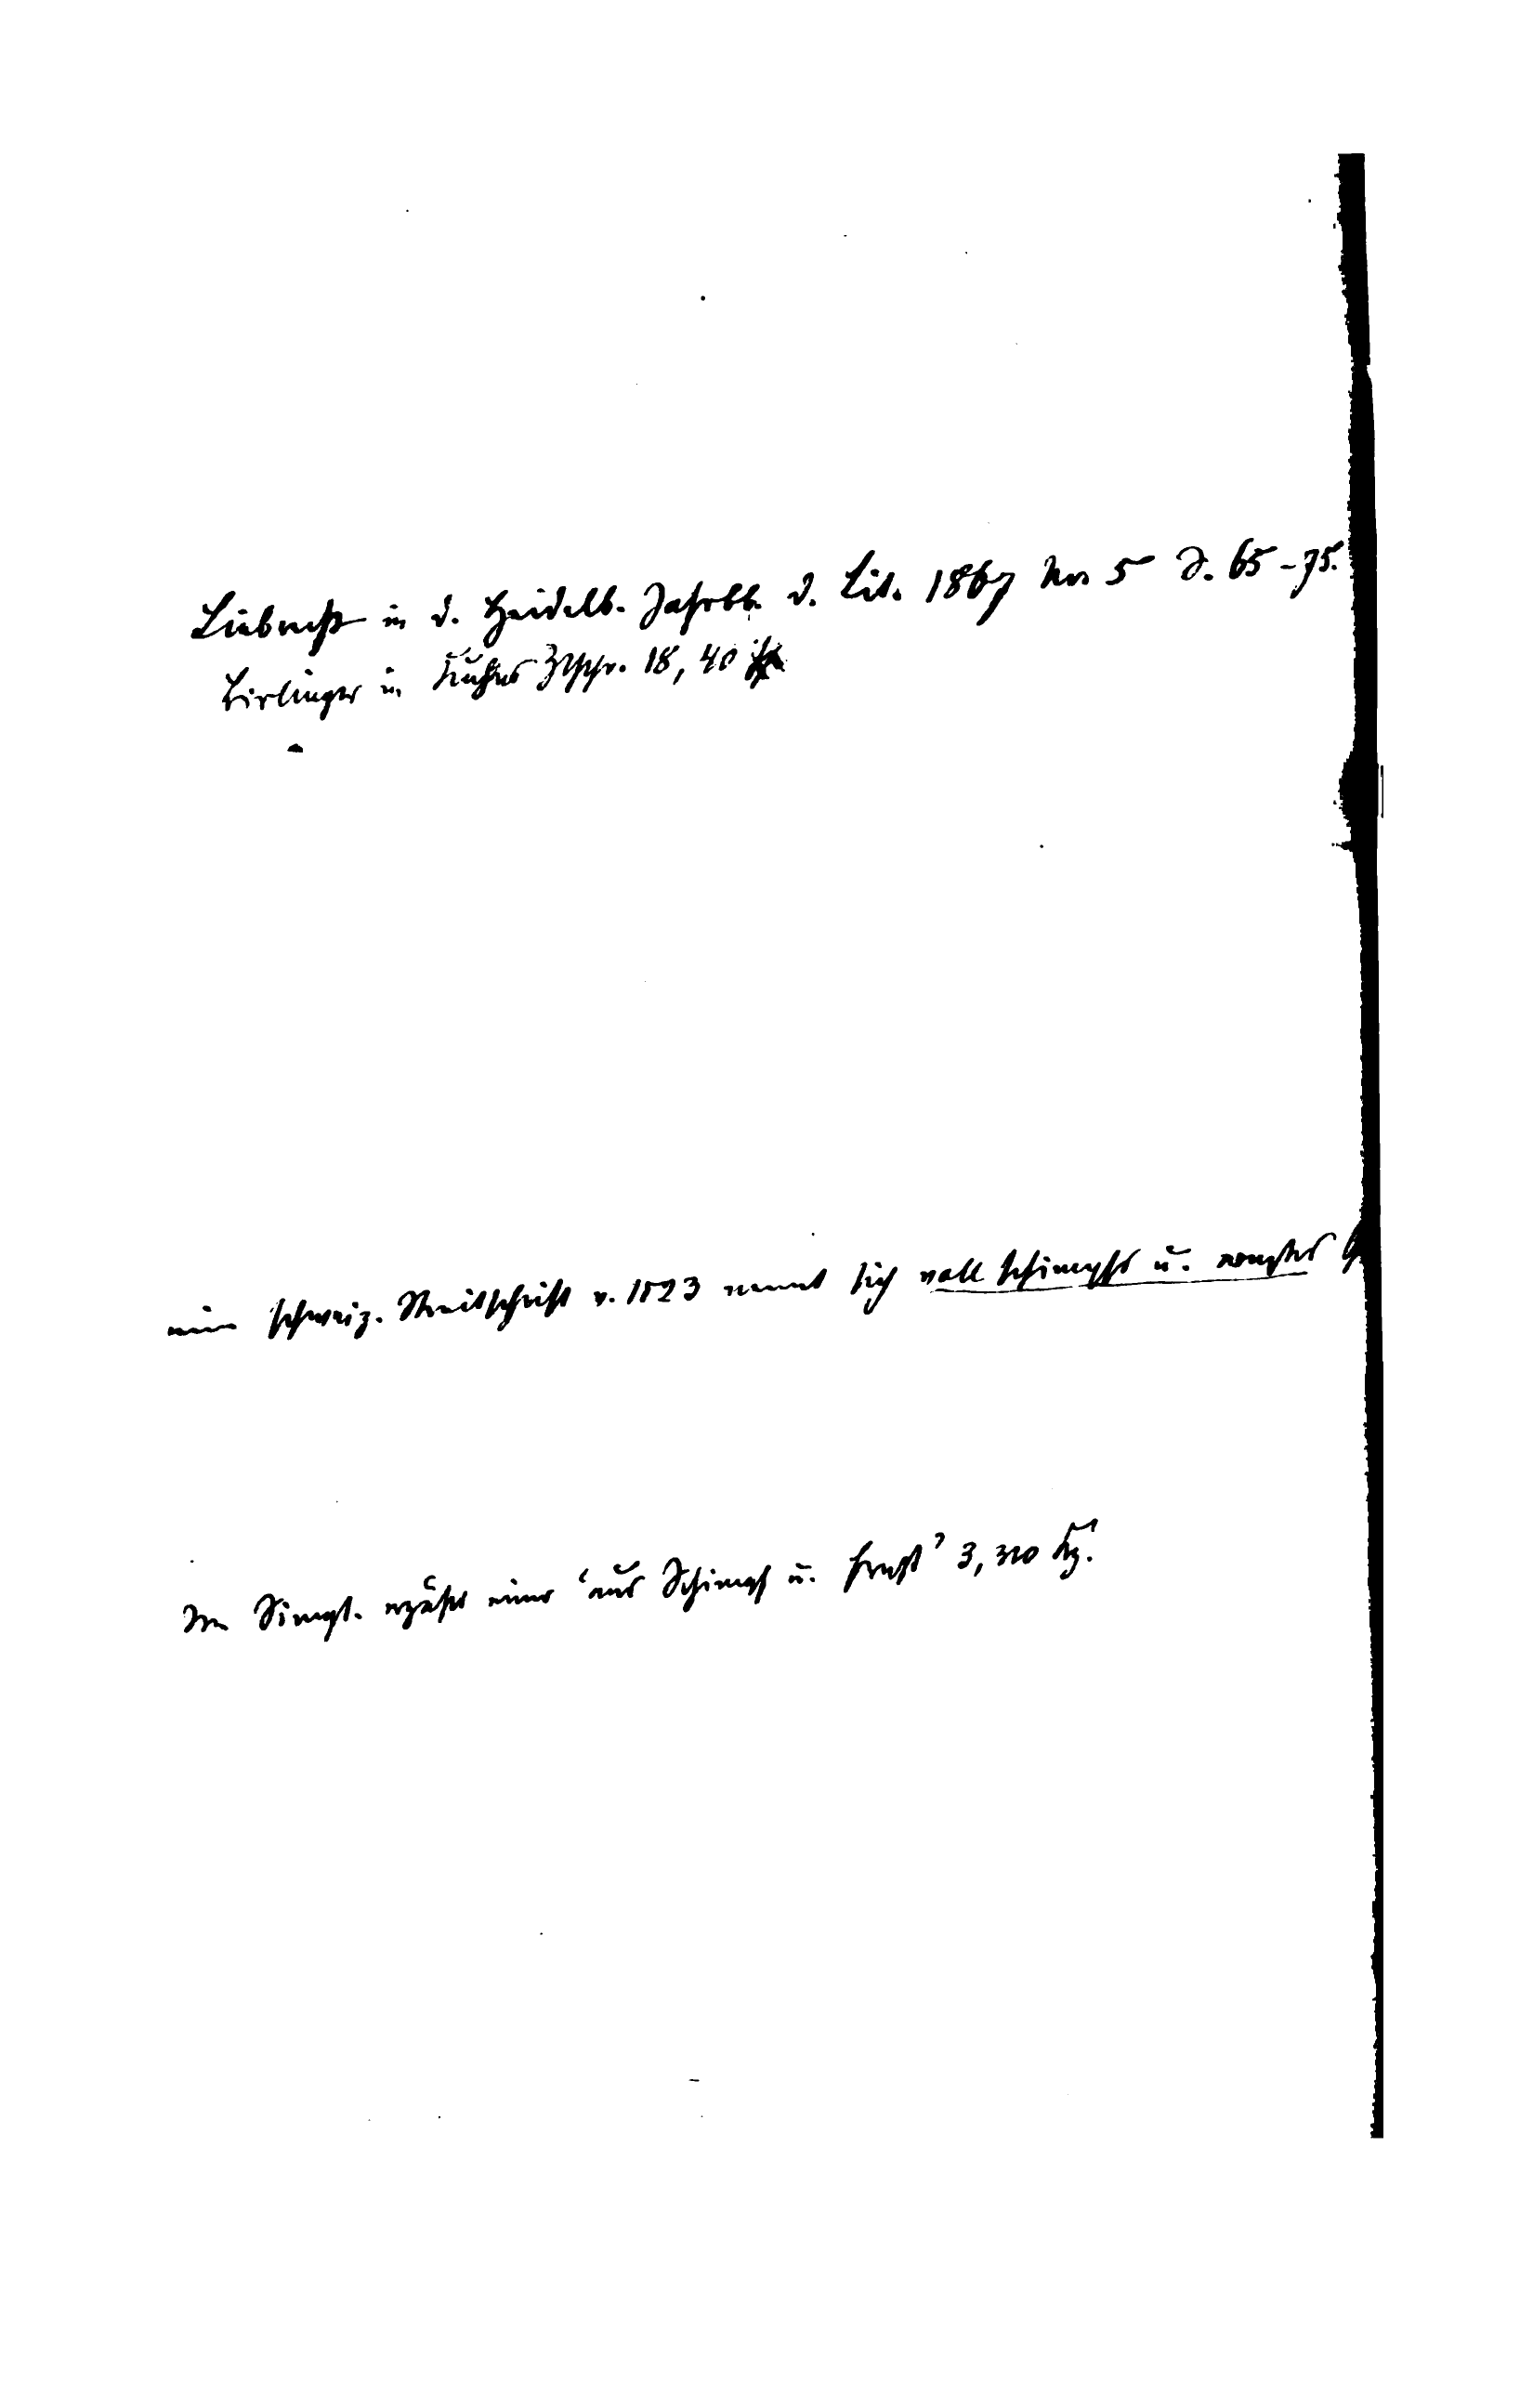 Liebrecht in d. Heidelb. Jahrbb. d. Lit. 1867 No 5 S. 65-75.
Birlinger in Kuhns Ztschr. 18, 40
eine schweiz. Streitschrift v. 1523 nennt sich voll schimpfs u. ernstes
Im Simpl. erzählt einer 'aus Schimpf u. Ernst' 3, 310 Kz.